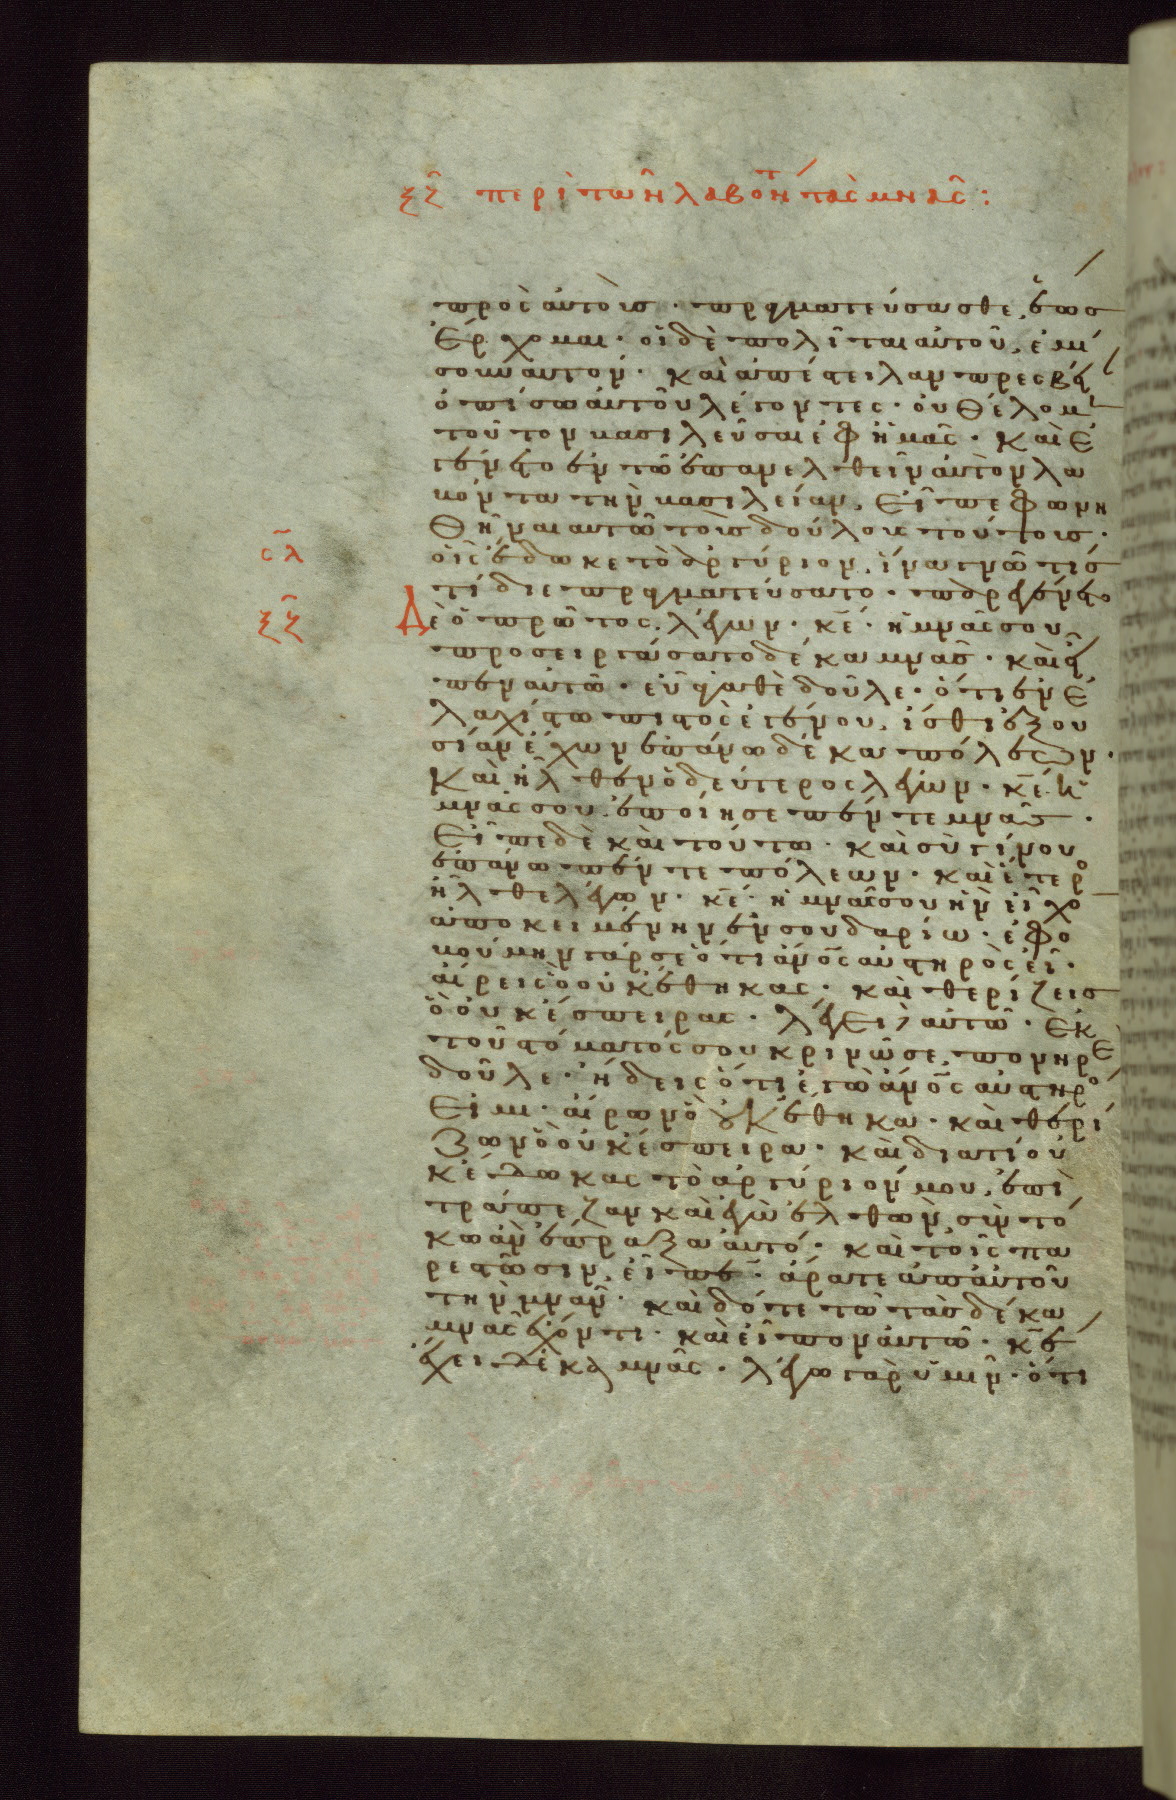 ξζ περὶ τῶν λαβόντ τὰς μνᾶς:
πρὸς αὐτοὺς· πραγματεύσασθε ἕως
ἔρχομαι· οἱ δὲ πολῖται αὐτοῦ, ἐμί
σουν αὐτόν· καὶ ἀπέστειλαν πρεσβεί
ὀπίσω αὐτοῦ λέγοντες· οὐ θέλομ
τοῦτον βασιλεῦσαι ἐφ ἡμᾶς· καὶ ἐ
γένετο ἐν τῶ ἐπανελθεῖν αὐτὸν λα
βόντα τὴν βασιλείαν, εἶπε φωνη
θῆναι αὐτῶ τοὺς δούλους τούτους·
οἷς ἔδωκε τὸ ἀργύριον, ἵνα γνῶ τίς
τί διεπραγματεύσατο· παρεγένετο
δὲ ὁ πρῶτος, λέγων· κε· ἡ μνᾶ σου
προσειργάσατο δέκα μνᾶς· καὶ εἶ
πεν αὐτῶ· εὖ ἀγαθὲ δοῦλε· ὅτι ἐν ἐ
λαχίστω πιστὸς ἐγένου, ἴσθι ἐξου
σίαν ἔχων ἐπάνω δέκα πόλεων·
καὶ ἦλθεν ὁ δεύτερος λέγων· κε, ἡ
μνᾶ σου ἐποίησε πέντε μνᾶς·
εἶπε δὲ καὶ τούτω· καὶ σὺ γίνου
ἐπάνω πέντε πόλεων· καὶ ἕτερο
ἦλθε λέγων· κε· ἡ μνᾶ σου ἣν εἶχο
ἀποκειμένην ἐν σουδαρίω· ἐφο
βούμην γάρ σε ὅτι ἄνος αὐστηρὸς εἶ·
αἴρεις ὃ οὐκ ἔθηκας· καὶ θερίζεις
ὃ οὐκ ἔσπειρας· λέγει αὐτῶ· ἐκ
τοῦ στόματός σου κρινῶ σε, πονηρὲ
δοῦλε· ἤδεις ὅτι ἐγὼ ἄνος αὐστηρο
εἰμι· αἴρων ὃ οὐκ ἔθηκα· καὶ θερί
ζων ὃ οὐκ ἔσπειρα· καὶ διατί οὐ
κ ἔδωκας τὸ ἀργύριόν μου, ἐπὶ
τράπεζαν καὶ ἐγὼ ἐλθὼν, σὺν τό
κω ἂν ἔπραξα αὐτό· καὶ τοῖς πα
ρεστῶσιν, εἶπε· ἄρατε ἀπ αὐτοῦ
τὴν μνᾶν· καὶ δότε τῶ τὰς δέκα
μνᾶς ἔχοντι· καὶ εἶπον αὐτῶ· κε
ἔχει δέκα μνᾶς· λέγω γὰρ ὑμῖν· ὅτι
σλ
ξζ